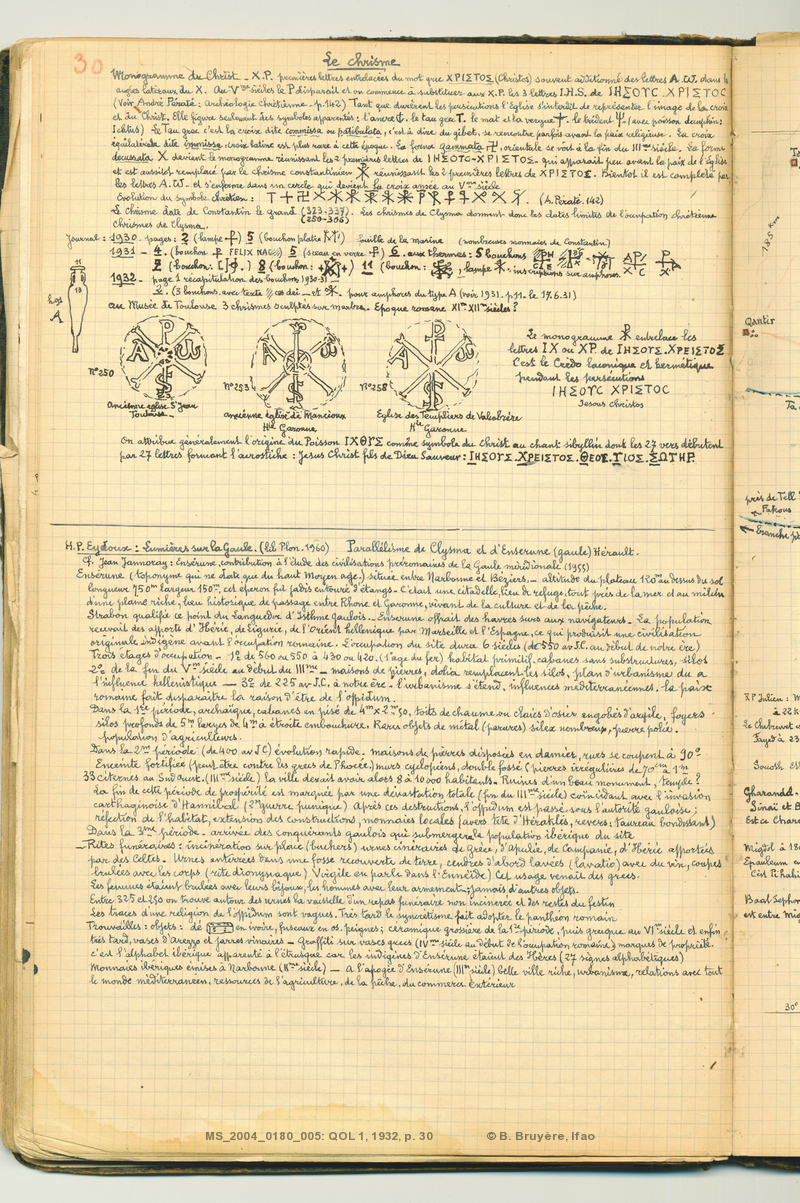 30
Le chrisme
Monogramme du Christ _ X.P. premières lettres entrelacées du mot grec ΧΡΙΣΤΟΣ (Christos) souvent additionné des lettres A.W. dans les
angles latéraux du X. Au Vme siècle le P disparait et on commence à substituer aux X.P. les 3 lettres I.H.S. de ΙΗΣΟΥΣ ΧΡΙΣΤΟΣ
(Voir André Pératé: Archéologie Chrétienne - p.142) Tant que durèrent les persécutions l'Eglise s'interdit de représenter l'image de la croix
et du Christ. Elle figure seulement des symboles apparentés: l'ancre, le tau grec T. le mat et la vergue. le trident Ψ (avec poisson dauphin:
Ichtus) Le Tau grec c'est la croix dite commissa ou patibulata, c'est à dire du gibet, se rencontre parfois avant la paix religieuse. La croix
équilatérale dite immissa, croix latine est plus rare à cette époque. La forme gammata 卍, orientale se voit à la fin du IIIme siècle. La forme
decussata X devient le monogramme réunissant les 2 premières lettres de ΙΗΣΟΤΣ-ΧΡΙΣΤΟΣ. qui apparait peu avant la paix de l'Eglise
et est aussitôt remplacé par le chrisme constantinien ☧ réunissant les 2 premières lettres de ΧΡΙΣΤΟΣ. Bientôt il est complété par
les lettres A.W _ et s'enferme dans un cercle qui devient la croix ansée au Vme siècle
Evolution du symbole chrétien: T + 卍 X (A. Pératé. 142)
Le chrisme date de Constantin le grand (323-337). Les chrismes de Clysma donnent donc les dates limites de l'occupation chrétienne
(250-356)
Chrismes de Clysma.
Journal: 1930. pages: 2 (lampe) 5 (bouchon plâtre) fouille de la marine (nombreuses monnaies de Constantin)
1931 - 4. (bouchon FELIX NAC) 5 (sceau en verre) 6. aux thermes: 5 bouchons
7 (bouchon:) 8 (bouchon:) 11 (bouchon:, lampe: inscriptions sur amphores
1932 - page 1 récapitulation des bouchons 1930-31
2. (3 bouchons avec texte dei - et). pour amphores du type A (voir 1931. p.11. le 17.6.31)
au Musée de Toulouse 3 chrismes sculptés sur marbre. Epoque romane XIme XIIme siècles?
11
13
A
N° 250
Ancienne église St Jean
Toulouse
N° 253
ancienne église de Mancioux
Hte Garonne
N° 258
Eglise des Templiers de Valcabrère
Hte Garonne
Le monogramme ☧ entrelace les
lettres IX ou XP. de ΙΗΣΟΥΣ. ΧΡΕΙΣΤΟΣ
C'est le Credo laconique et hermétique
pendant les persécutions
ΙΗΣΟΥΣ ΧΡΙΣΤΟΣ
Jesous Christos
On attribue généralement l'origine du Poisson ΙΧΘΥΣ comme symbole du Christ au chant sibyllin dont les 27 vers débutent
par 27 lettres formant l'acrostiche: Jesus Christ fils de Dieu Sauveur: ΙΗΣΟΥΣ. ΧΡΕΙΣΤΟΣ. ΘΕΟΥ. ΥΙΟΣ. ΣΩΤΗΡ.
H.P. Eydoux: Lumières sur la Gaule. (Ed. Plon. 1960) Parallélisme de Clysma et d'Enserune (gaule) Hérault.
Cf. Jean Jannoray: Ensérune, contribution à l'étude des civilisations préromaines de la Gaule méridionale (1955)
Enserune (toponyme qui ne date que du haut Moyen age.) située entre Narbonne et Béziers _ altitude du plateau 120m au dessus du sol
longueur 750m largeur 150m, cet éperon fut jadis entouré d'étangs _ C'était une citadelle, lieu de refuge, tout près de la mer et au milieu
d'une plaine riche, lieu historique de passage entre Rhone et Garonne, vivant de la culture et de la pêche.
Strabon qualifie ce point du Languedoc d'Isthme gaulois _ Enserune offrait des havres surs aux navigateurs _ La population
recevait des apports d'Ibérie, de Ligurie, de l'Orient hellénique par Marseille et l'Espagne, ce qui produisit une civilisation
originale indigène avant l'occupation romaine. L'occupation du site dura 6 siècles (de 550 av J.C. au début de notre ère)
Trois étages d'occupation _ 1° de 560 ou 550 à 430 ou 420. (l'age du fer) habitat primitif, cabanes sans substructures, silos
2° de la fin du Vme siècle au début du IIIme - maisons de pierres, dolia remplacent les silos, plan d'urbanisme du a
l'influence hellénistique _ 3° de 225 av J.C. à notre ère. l'urbanisme s'étend, influences méditerranéennes. la paix
romaine fait disparaître la raison d'être de l'oppidum.
Dans la 1ère période, archaïque, cabanes en pisé de 4m x 2m50, toits de chaume ou claies d'osier engobés d'argile, foyers
silos profonds de 5m larges de 4m à étroite embouchure. Rares objets de métal (parures) silex nombreux, pierre polie.
population d'agriculteurs.
Dans la 2me période (de 400 av J C) évolution rapide. maisons de pierres disposées en damier, rues se coupent à 90°
Enceinte fortifiée (peut être contre les grecs de Phocée) murs cyclopéens, double fossé (pierres irrégulières de 70cm à 1m
33 citernes au Sud Ouest. (IIIme siècle) la ville devait avoir alors 8 à 10 000 habitants. Ruines d'un beau monument, temple?
La fin de cette période de prospérité est marquée par une dévastation totale (fin du IIIme siècle) coïncidant avec l'invasion
carthaginoise d'Hannibal (2me guerre punique) Après ces destructions, l'oppidum est passé sous l'autorité gauloise;
réfection de l'habitat, extension des constructions, monnaies locales (avers tête d'Héraklès, revers: taureau bondissant)
Dans la 3me période - arrivée des conquérants gaulois qui submerge la population ibérique du site
_ Rites funéraires: incinération sur place (buchers) urnes cinéraires de Grèce, d'Apulie, de Campanie, d'Ibérie apportées
par des Celtes. Urnes enterrées dans une fosse recouverte de terre, cendres d'abord lavées (lavatio) avec du vin, coupes
brulées avec les corps (rite dionysiaque) Virgile en parle dans l'Enneïde) Cet usage venait des grecs.
Les femmes étaient brulées avec leurs bijoux, les hommes avec leur armement; jamais d'autres objets.
Entre 325 et 250 on trouve autour des urnes la vaisselle d'un repas funéraire non incinérée et des restes du festin
Les traces d'une religion de l'oppidum sont vagues. Très tard le syncrétisme fait adopter le panthéon romain
Trouvailles: objets: dé en ivoire, fuseaux en os, peignes; céramique grossière de la 1ère période, puis grecque au VIme siècle et enfin
très tard, vases d'Arezzo et jarres vinaires _ Graffiti sur vases grecs (IVme siècle au début de l'occupation romaine) marques de propriété.
c'est l'alphabet ibérique apparenté à l'étrusque car les indigènes d'Ensérune étaient des Ibères (27 signes alphabétiques)
Monnaies ibériques émises à Narbonne (IIme siècle) _ A l'apogée d'Enserune (IIIme siècle) belle ville riche, urbanisme, relations avec tout
le monde méditerranéen, ressources de l'agriculture, de la pêche, du commerce extérieur
Qantir
près de Tell
Fakous
Branche
R P Julien: M
à 22 k
Le Chatruvet
Fayed à 23
Gharandel.
Sinaï et B
Est ce Char
Migdol à 18
Epauleum
C'est Pi hahi
Baal Sephon
est entre Mig
30°
MS_2004_0180_005: QOL 1, 1932, p. 30 © B. Bruyère, Ifao